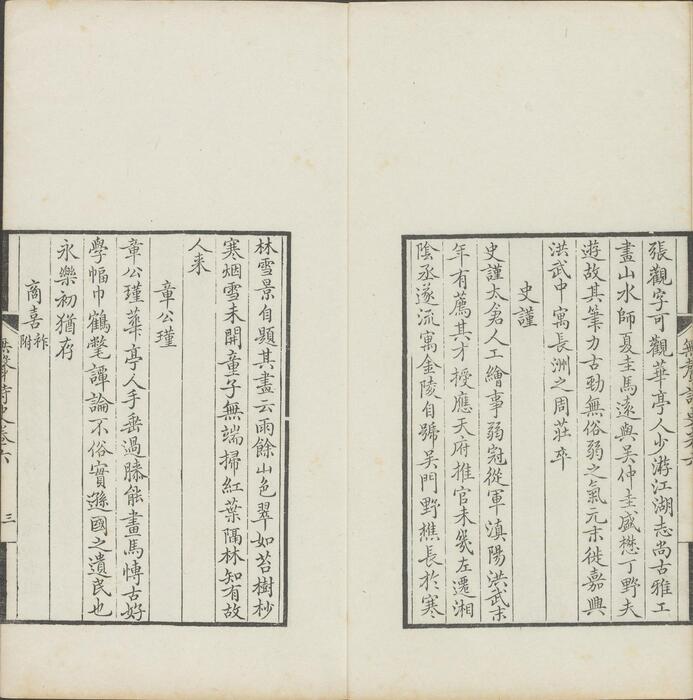 張觀字可觀華亭人少游江湖志尚古雅工
畫山水師夏圭馬遠與吳仲圭盛懋丁野夫
遊故其筆力古勁無俗弱之氣元末徙嘉興
洪武中寓長洲之周莊卒
史謹
史謹太倉人工繪事弱冠從軍滇陽洪武末
年有薦其才授應天府推官未幾左遷湘
陰丞遂流寓金陵自號吳門野樵長於寒
林雪景自題其畫云雨餘山色翠如苔樹杪
寒烟雪未開童子無端掃紅葉隔林知有故
人来
章公瑾
章公瑾華亭人手垂過膝能畫馬愽古好
學幅巾鶴氅譚論不俗實遜國之遺民也
永樂初猶存
商喜
祚
附
無聲詩史卷六
三